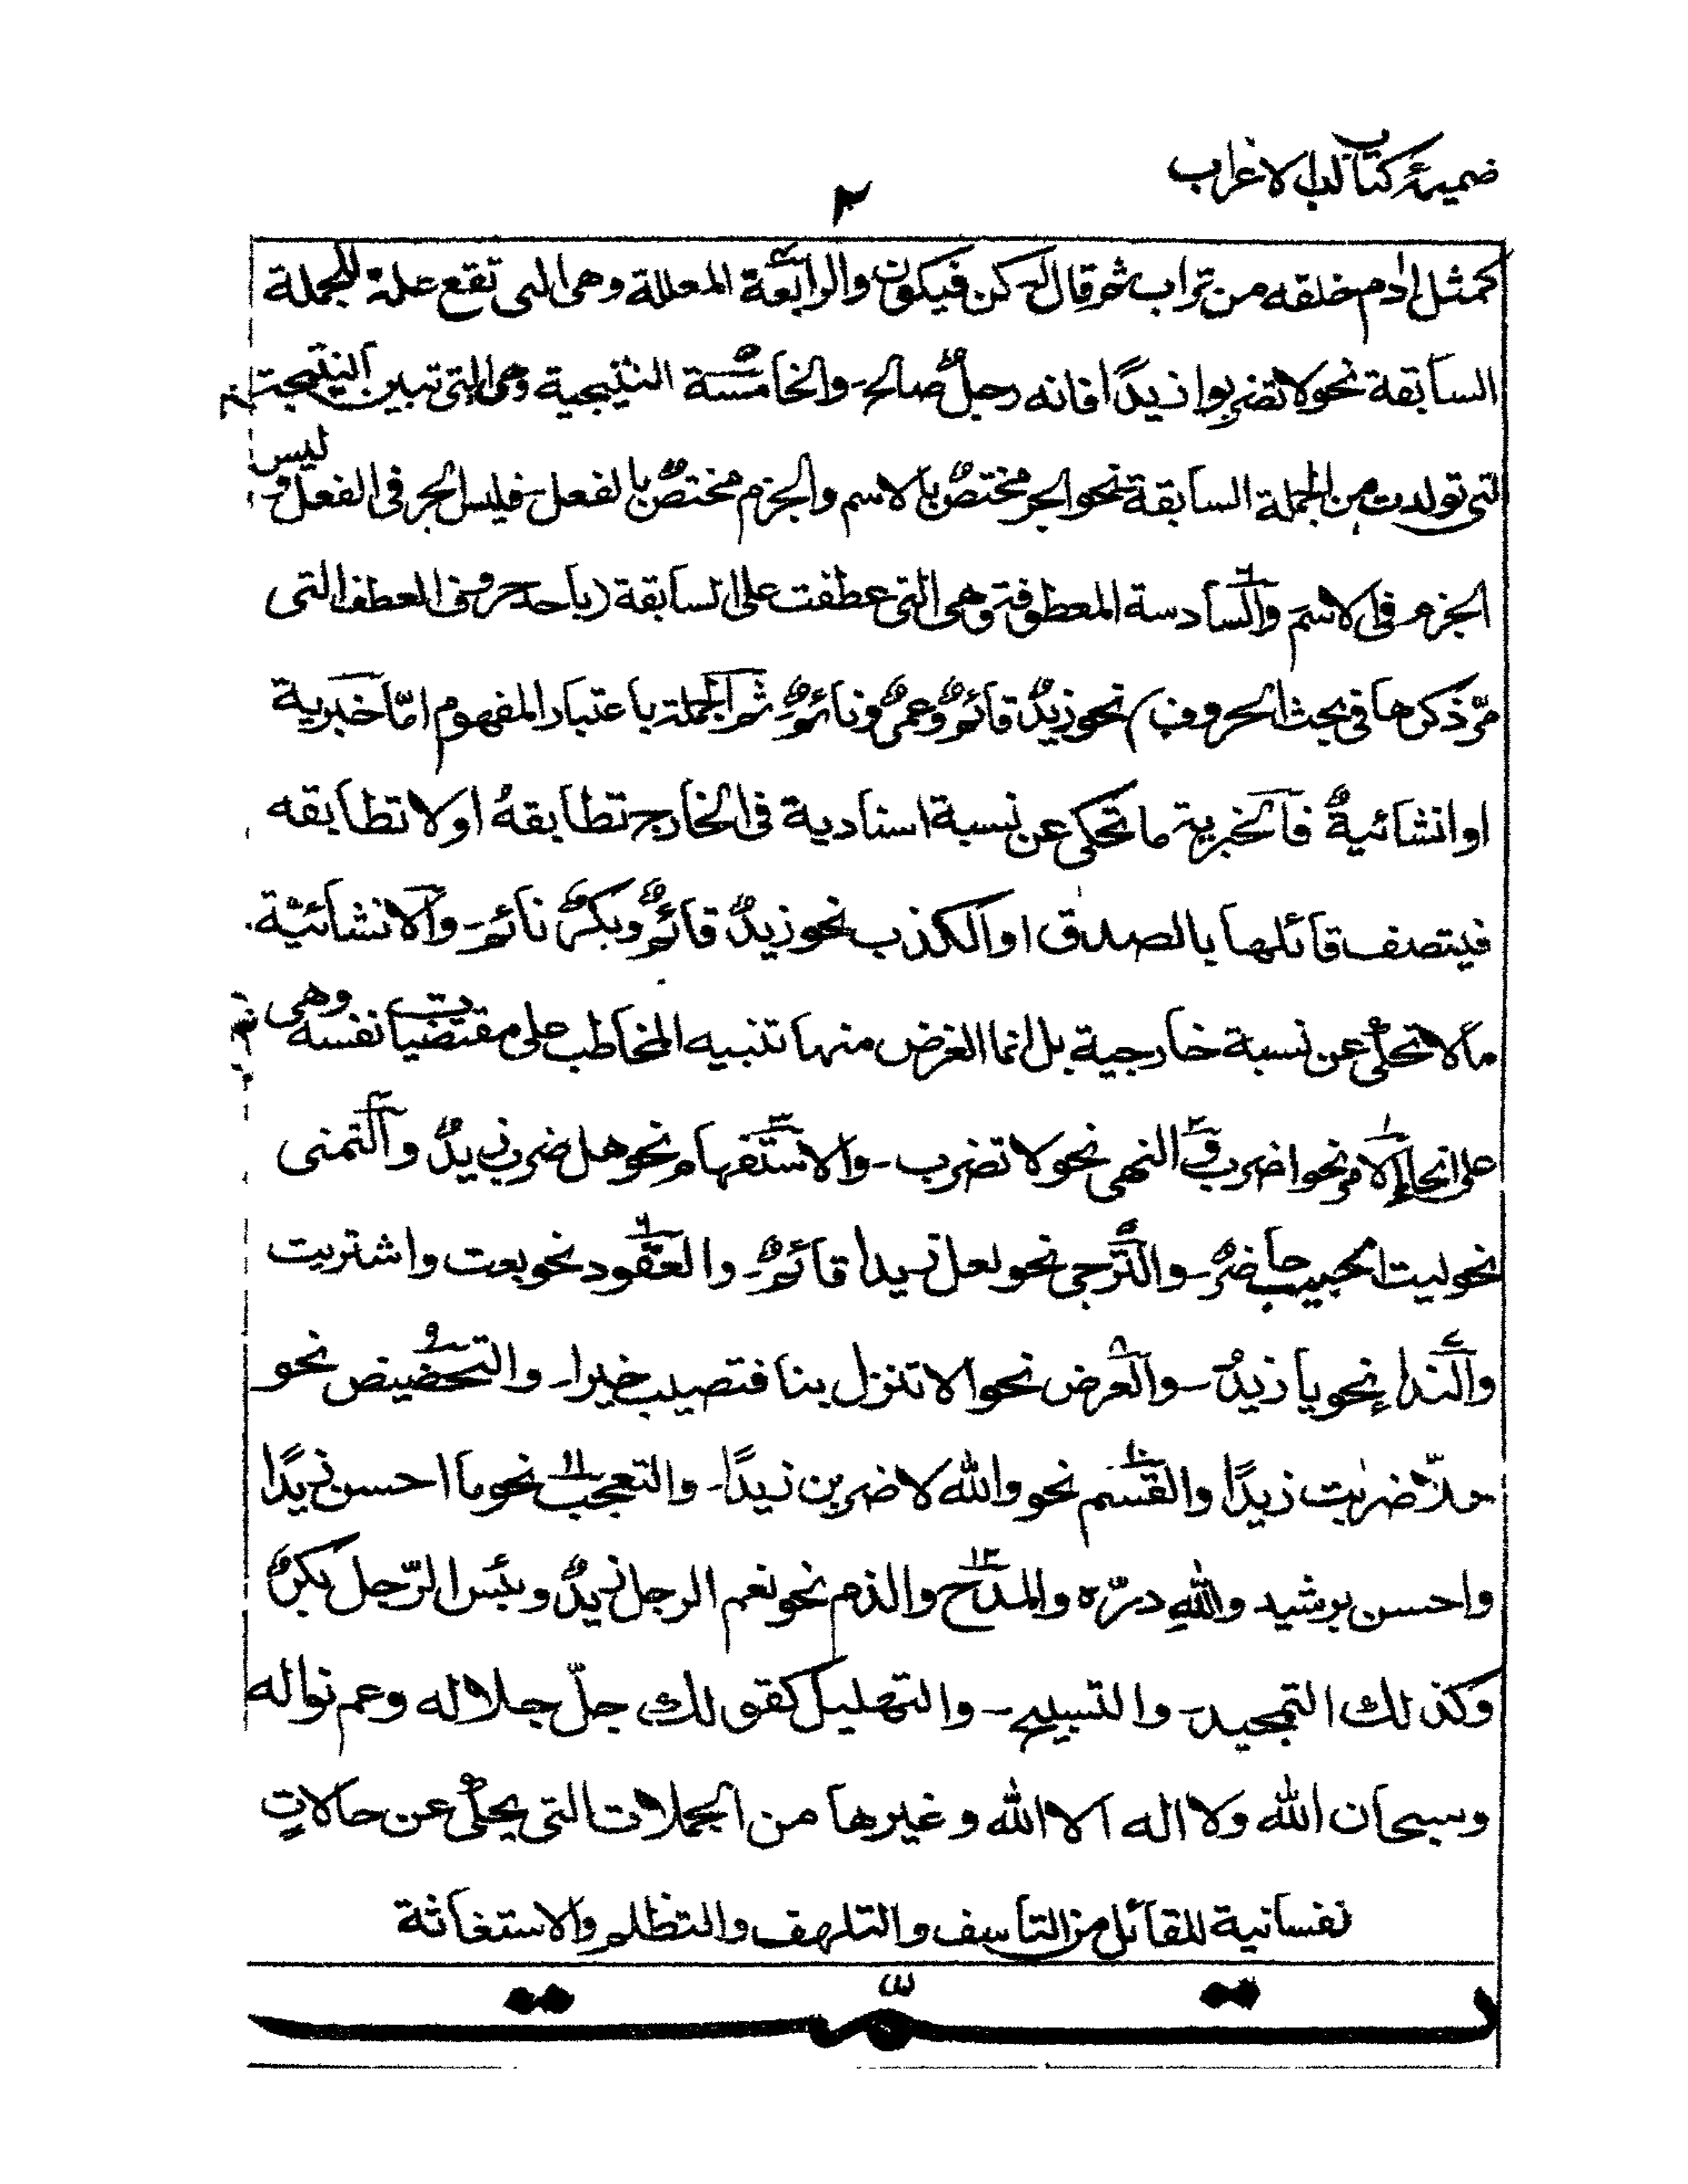 ضميمۂ كتاب لب الاعراب
٢
كمثل اٰدم خلقه من تراب ثم قال له كن فيكون والرابعة المعللة وهى التى تقع علة للجملة
السابقة نحو لا تضربوا زيدًا فانه رجلٌ صالح۔ والخامسة النتيجية وهى التى تبين النتيجة
التى تولدت من الجملة السابقة نحو الجر مختصٌ بالاسم والجزم مختصٌ بالفعل۔ فليس الجر فى الفعل وليس
الجزم فى الاسم والسادسة المعطوفة وهى التى عطفت على السابقة (باحد حروف العطف التى
مرّ ذكرها فى بحث الحروف) نحو زيدٌ قائمٌ وعمرٌو نائمٌ۔ ثم الجملة باعتبار المفهوم امّا خبرية
او انشائيةٌ فالخبرية ما تحكى عن نسبة اسنادية فى الخارج تطابقهُ او لا تطابقه
فيتصف قائلها بالصدق او الكذب نحو زيدٌ قائمٌ وبكرٌ نائم۔ والانشائيّة
ما لا تحكى عن نسبة خارجية بل انما الغرض منها تنبيه المخاطب على مقتضيات نفسه وهى
على انحاء الامر نحو اضرب و النهى نحو لا تضرب۔ والاستفهام نحو هل ضرب زيدٌ والتمنى
نحو ليت الحبيب حاضرٌ۔ والترجى نحو لعل زيدا قائمٌ۔ والعقود نحو بعت واشتريت
والنداء نحو يا زيدُ۔ والعرض نحو الا تنزل بنا فتصيب خيرا۔ والتحضيض نحو
هلّا ضربت زيدًا والقسم نحو والله لاضربن زيدًا۔ والتعجب نحو ما احسن زيدًا
واحسن برشيد وللهِ درّه والمدح والذم نحو نعم الرجل زيدٌ وبئس الرّجل بكرٌ
وكذلك التمجيد۔ والتسبيح۔ والتهليل كقولك جلّ جلاله وعم نواله
وسبحان الله ولا اله الا الله وغيرها من الجملات التى يحكى عن حالاتٍ
نفسانية للقائل من التأسف والتلهف والتظلم والاستغاثة
تمّت